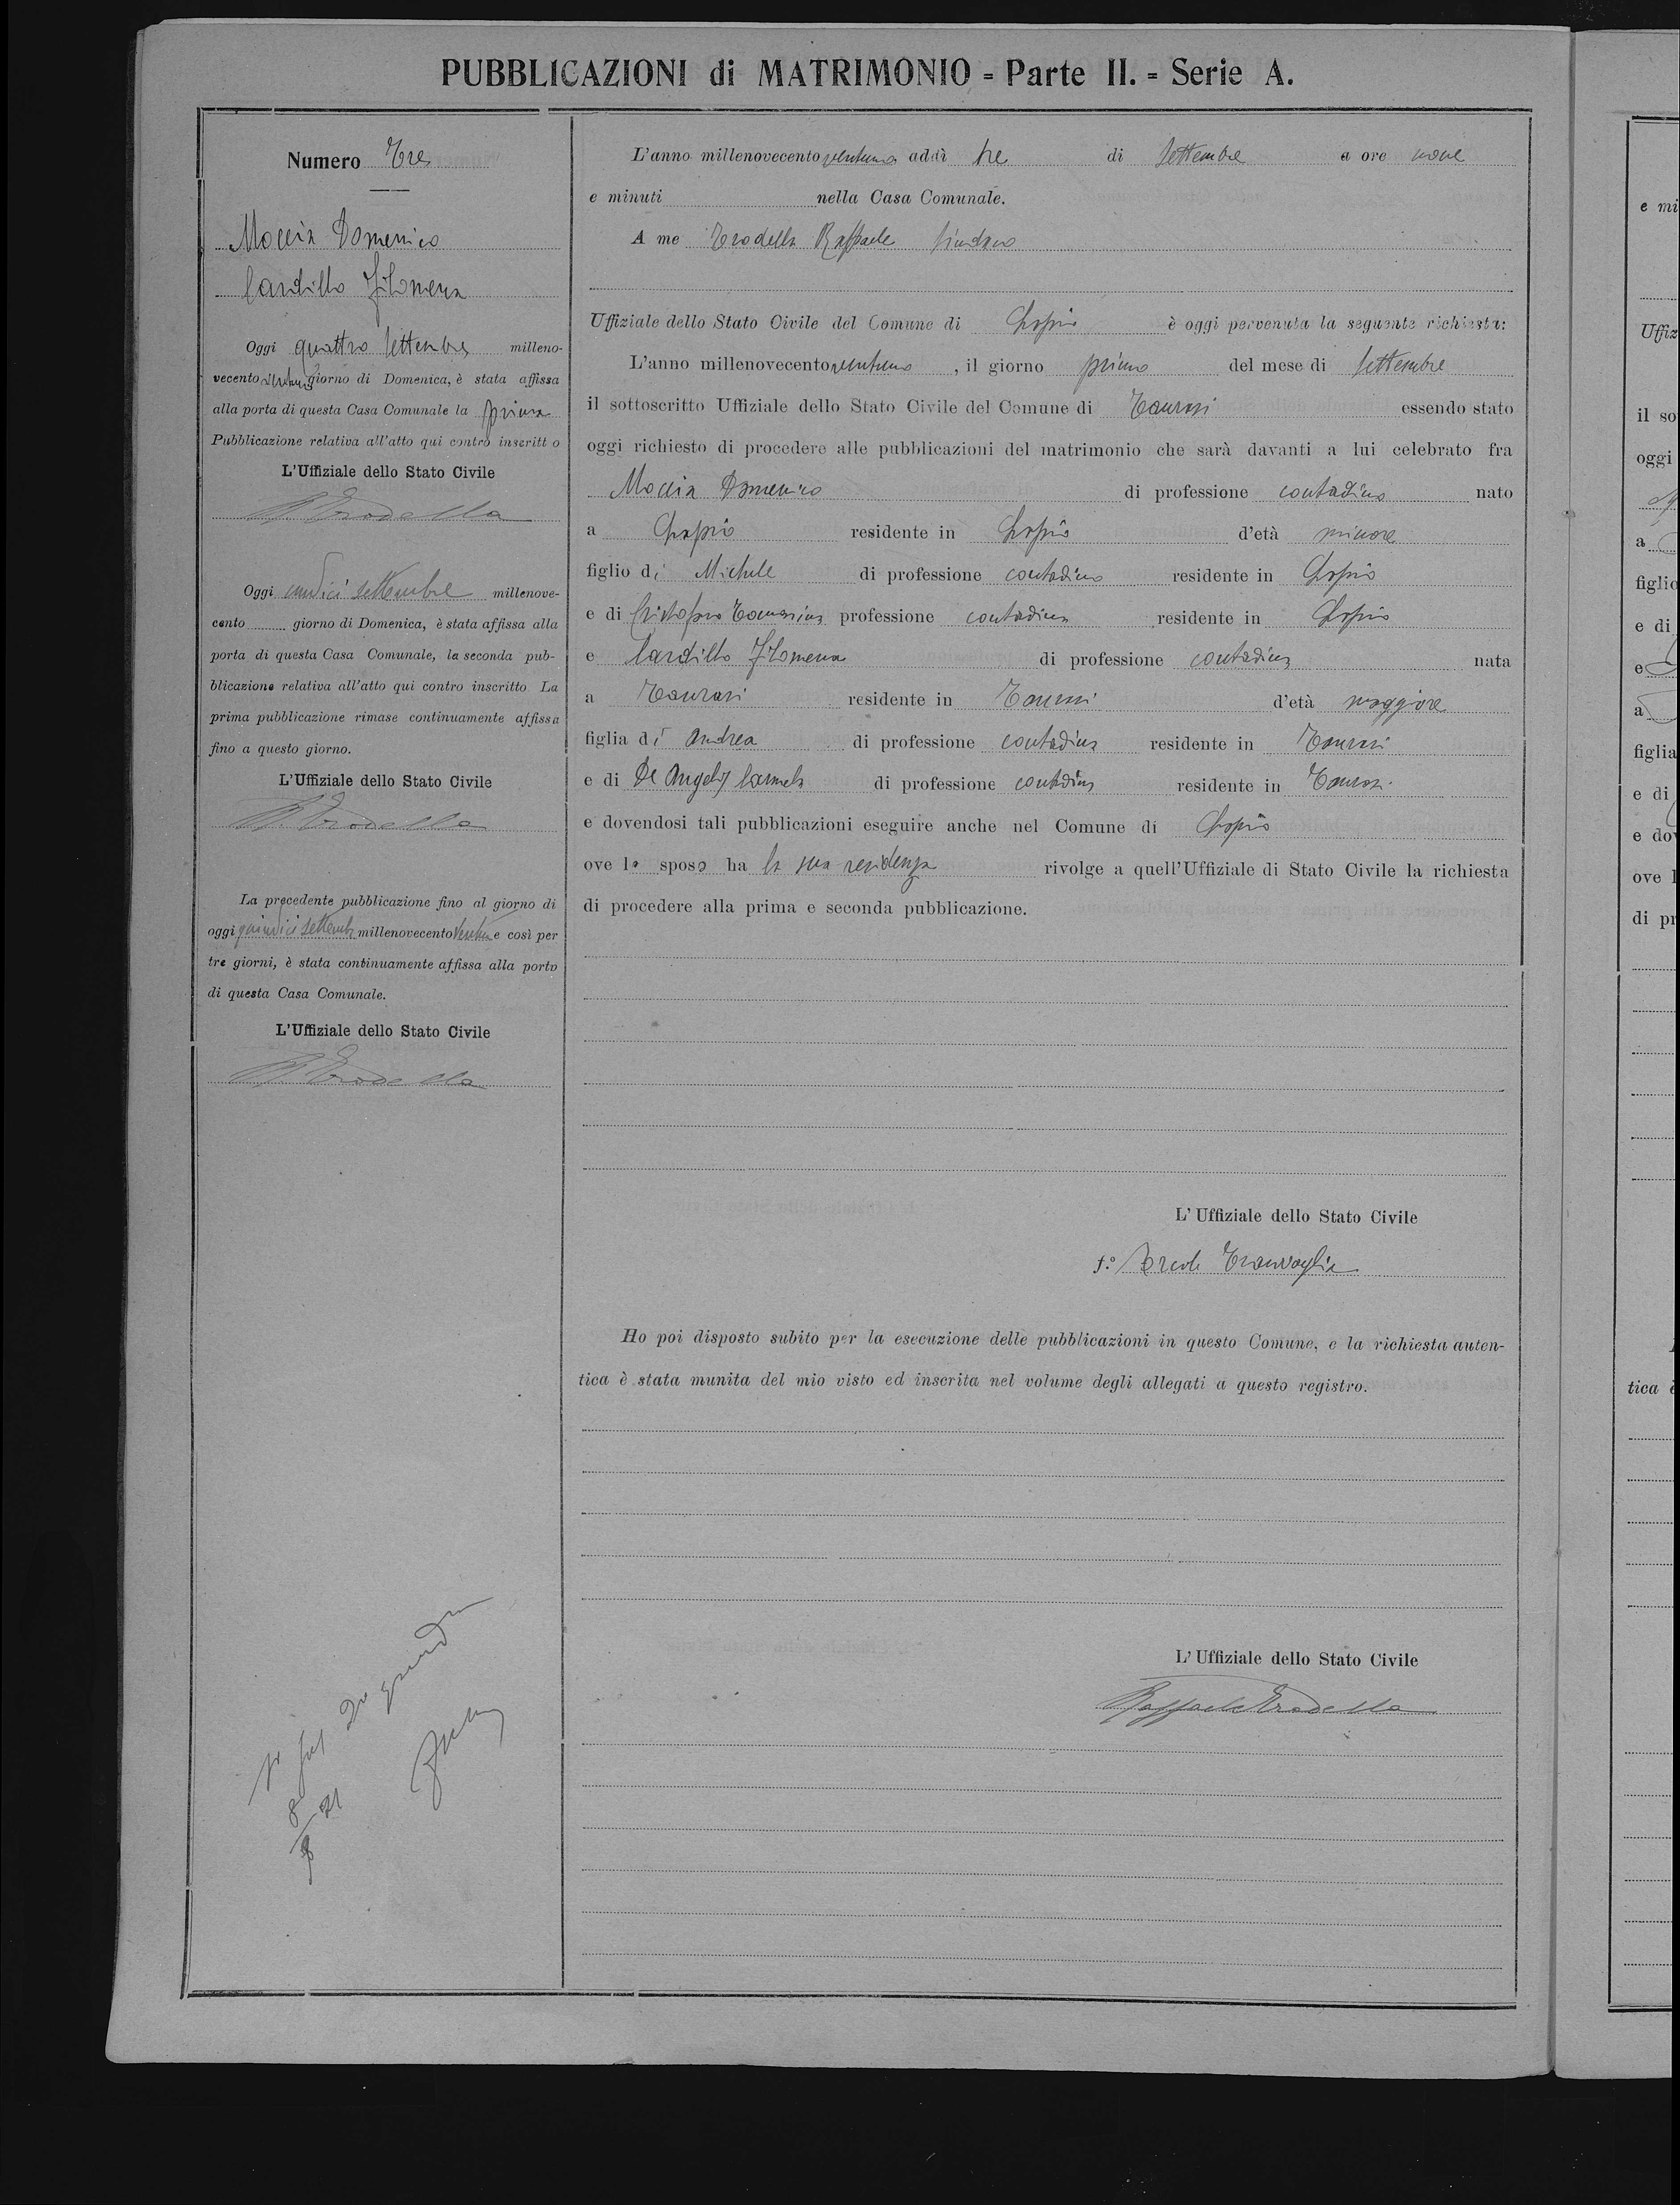 PUBBLICAZIONI di MATRIMONIO = Parte II. = Serie A.
Numero Tre
Moccia Domenico
Cardillo Filomena
Oggi quattro Settembre milleno-
vecentoventuno giorno di Domenica, è stata affissa
alla porta di questa Casa Comunale la prima
Pubblicazione relativa all'atto qui contro inscritto
L'Uffiziale dello Stato Civile
R. Trodella
Oggi undici settembre millenove-
cento giorno di Domenica, è stata affissa alla
porta di questa Casa Comunale, la seconda pub-
blicazione relativa all'atto qui contro inscritto. La
prima pubblicazione rimase continuamente affissa
fino a questo giorno.
L'Uffiziale dello Stato Civile
R. Trodella
La precedente pubblicazione fino al giorno di
oggi quindici settemb millenovecento e così per
tre giorni, è stata continuamente affissa alla porto
di questa Casa Comunale.
L'Uffiziale dello Stato Civile
R. Trodella
L'anno millenovecento ventuno addì tre di Settembre a ore nove
e minuti nella Casa Comunale.
A me Trodella Raffaele Sindaco
Uffiziale dello Stato Civile del Comune di Lapio è oggi pervenuta la seguente richiesta:
L'anno millenovecento ventuno, il giorno primo del mese di Settembre
il sottoscritto Uffiziale dello Stato Civile del Comune di Taurasi essendo stato
oggi richiesto di procedere alle pubblicazioni del matrimonio che sarà davanti a lui celebrato fra
Moccia Domenico di professione contadino nato
a Lapio residente in Lapio d'età minore
figlio di Michele di professione contadino residente in Lapio
e di professione contadina residente in Lapio
e Cardillo Filomena di professione contadina nata
a Taurasi residente in Taurasi d'età maggiore
figlia di Andrea di professione contadino residente in Taurasi
e di De Angelis Carmela di professione contadina residente in Taurasi
e dovendosi tali pubblicazioni eseguire anche nel Comune di Lapio
ove lo sposo ha la sua residenza rivolge a quell'Uffiziale di Stato Civile la richiesta
di procedere alla prima e seconda pubblicazione.
L'Uffiziale dello Stato Civile
f.o Ercole
Ho poi disposto subito per la esecuzione delle pubblicazioni in questo Comune, e la richiesta auten-
tica è stata munita del mio visto ed inscrita nel volume degli allegati a questo registro.
L'Uffiziale dello Stato Civile
Raffaele Trodella
8
9 21
e mi
Uffiz
il so
oggi
a
figlio
e di
e
a
figlia
e di
e dov
ove l
di pr
tica è